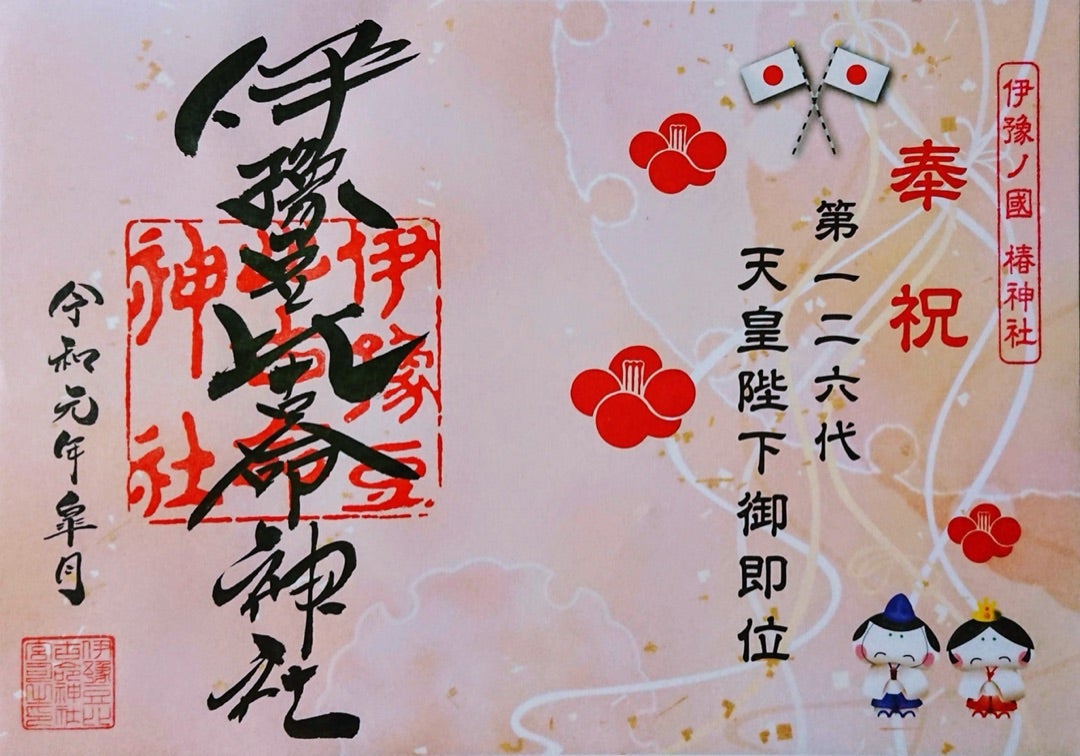 伊豫ノ國 椿神社
奉祝
第一二六代
天皇陛下御即位
伊豫豆比古命神社
伊豫豆比古命神社
令和元年皐月
伊豫豆比
古命神社
宮司之印